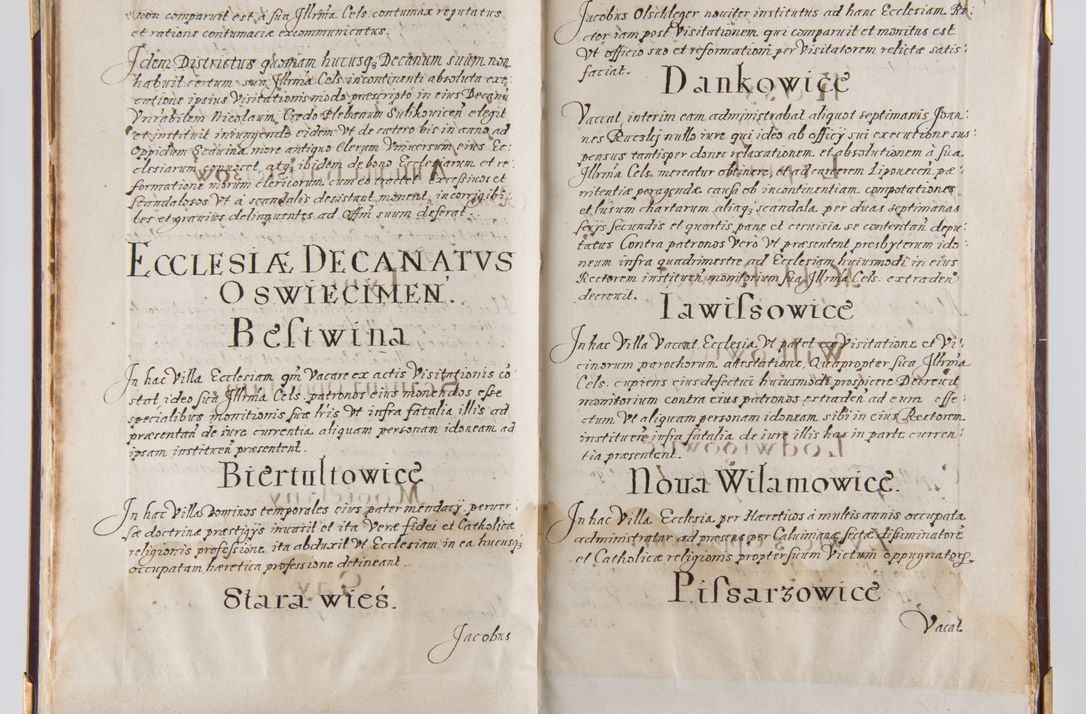 non comparuit est à sua Illrma Cels contumax reputatus
et ratione contumaciæ excommunicatus.
Idem Districtus quoniam hucusq; Decanum suum non
habuit certum sua Illrma Cels incontinenti absoluta exe-
cutione ipsius Visitationis modo præscripto in eius Decanū
Vnrabilem Nicolaum Credo Plebanum elegit
et instituit iniungendo eidem Vt de cætero bis in anno ad
Oppidum more antiquo clerum Vniversum eius Ec-
clesiarum convocet, atq; ibidem de bono Ecclesiarum et re-
formatione morum clericorum cum eo tractet. Excessivos et
scandalosos Vt à scandalis desistant moneat, incorrigibi-
les et gravius delinquentes ad Offm suum deferat.
ECCLESIÆ DECANATVS
OSWIECIMEN.
Bestwina
In hac Villa Ecclesiam qm Vacare ex actis Visitationis cō-
stat ideo sua Illrma Cels. patronos eius monendos esse
specialibus monitionis suæ lris Vt infra fatalia illis ad
præsentan de iure currentia aliquam personam idoneam ad
ipsam instituen præsentent.
Biertultowice
In hac Villa Dominos temporales eius pater mendacij perver-
sæ doctrinæ præstigijs invasit et ita Veræ fidei et Catholicæ
religionis professione ita abduxit Vt Ecclesiam in ea hucusq;
occupatam hæretica professione detineant.
Stara wieś.
Jacobus
Jacobus Olschleger noviter institutus ad hanc Ecclesiam Re-
ctor iam post Visitationem qui comparuit et monitus est
Vt officio suo et reformationi per Visitatorem relictæ satis-
faciat.
Dankowice
Vaccat, interim eam administrabat aliquot septimanis Joan-
nes nullo iure qui ideo ab officij sui executione sus-
pensus tantisper donec relaxationem et absolutionem à sua
Illrma Cels. mereatur obtinere, et ad carcerem Liponecen pæ-
nitentiæ peragendæ causa ob incontinentiam compotationes
et lusum chartarum aliaq; scandala per duas septimanas
ferijs secundis et quartis pane et cervisia se contentan depu-
tatus Contra patronos Verò Vt præsentent presbyterum ido-
neum infra quadrimestre ad Ecclesiam huiusmodi in eius
Rectorem instituen monitorium sua Illrma Cels. extraden
decrevit.
Iawissowice
In hac Villa Vaccat Ecclesia Vt patet ex Visitatione et Vi-
cinorum parochorum attestatione. Quapropter sua Illrma
Cels. cupiens eius defectui huiusmodi prospicere Decrevit
monitorium contra eius patronos extraden ad eum effe-
ctum Vt aliquam personam idoneam sibi in eius Rectorem
instituen infra fatalia de iure illis hac in parte curren-
tia præsentent.
Noua Wilamowice.
In hac Villa Ecclesia per Hæreticos à multis annis occupata
administratur ad præsens per Caluinianæ sectæ dissiminatore
et Catholicæ religionis propter suum Victum oppugnatorē
Pissarzowice
Vacat